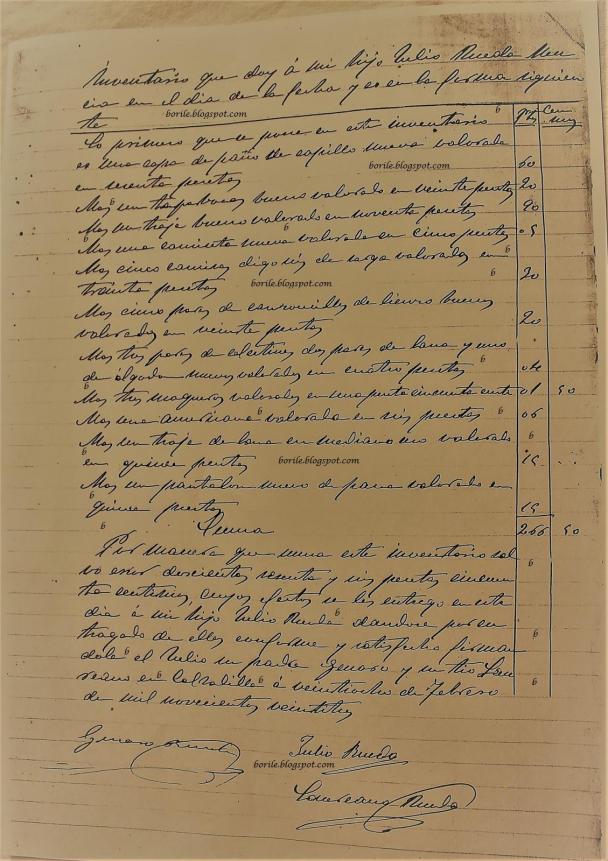 Inventario que doy á mi hijo Julio Rueda Men
cia en el dia de la fecha y es en la forma siguien
te
borile.blogspot.com
Pts Cen
Lo primero que se pone en este inventario
es una capa de paño de capillo nueva valorada
borile.blogspot.com
en sesenta pesetas 60
Mas un tapabocas bueno valorado en veinte pesetas 20
Mas un traje bueno valorado en noventa pesetas 90
Mas una camiseta nueva valorada en cinco pesetas 05
Mas cinco camisas digo seis de sarga valoradas en
treinta pesetas 20
borile.blogspot.com
Mas cinco pares de calzoncillos de lienzo buenos
valorados en veinte pesetas 20
Mas tres pares de calcetines dos pares de lana y uno
de algodon nuevos valorados en cuatro pesetas 04
Mas tres moqueros valorados en una peseta cincuenta 01 50
Mas una americana valorada en seis pesetas 06
Mas un traje de lana en mediano uso valorado
en quince pesetas 15
borile.blogspot.com
Mas un pantalon nuevo de pana valorado en
quince pesetas 15
Suma 266 50
Por manera que suma este inventario sal
vo error doscientas sesenta y seis pesetas cincuen
ta centimos, cuyos efectos se los entrego en este
dia á mi hijo Julio Rueda dandose por en
tregado de ellos conforme y satisfecho firman
dola el Julio su padre Genaro y su tio Lau
reano en Calzadilla á veintiocho de Febrero
de mil novecientos veintitres
Genaro Rueda
Julio Rueda
borile.blogspot.com
Laureano Rueda